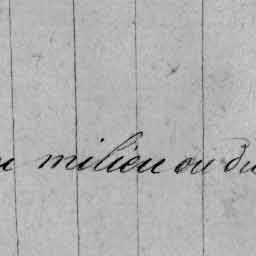 milieu ou du